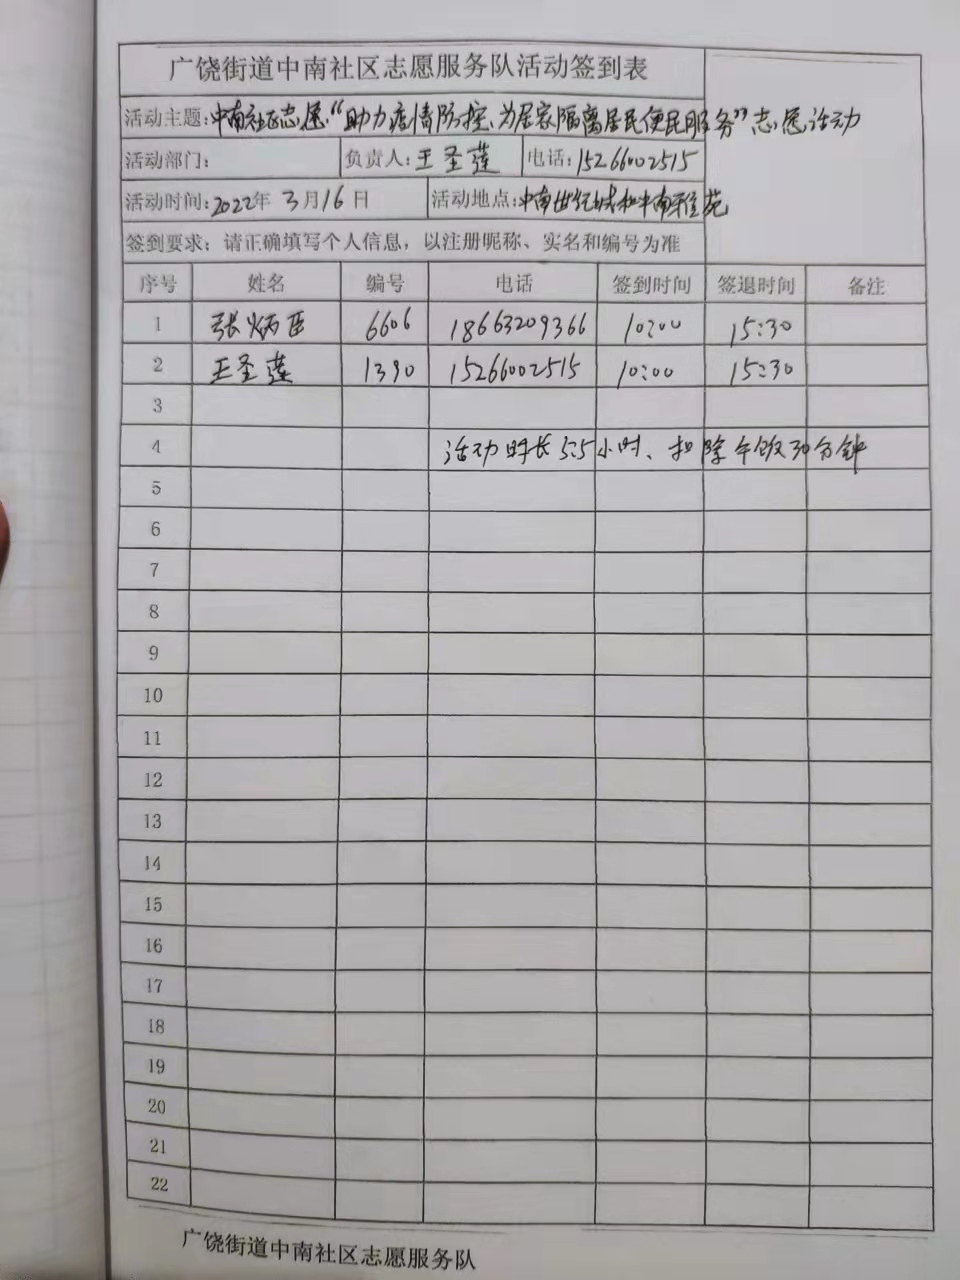 广饶街道中南社区志愿服务队活动签到表
活动主题:中南社区志愿“助力疫情防控、为居家隔离居民便民服务”志愿活动
活动部门: 负责人:王圣莲 电话:15266002515
活动时间:2022年3月16日 活动地点:中南世纪城和中南雅苑
签到要求:请正确填写个人信息,以注册昵称、实名和编号为准
序号 姓名 编号 电话 签到时间 签退时间 备注
1 张炳臣 6606 18663209366 10:00 15:30
2 王圣莲 1390 15266002515 10:00 15:30
3
4 活动时长5.5小时、扣除午饭30分钟
5
6
7
8
9
10
11
12
13
14
15
16
17
18
19
20
21
22
广饶街道中南社区志愿服务队